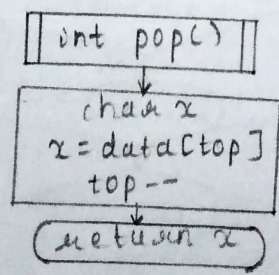 int pop()
char x
x = data[top]
top --
return x